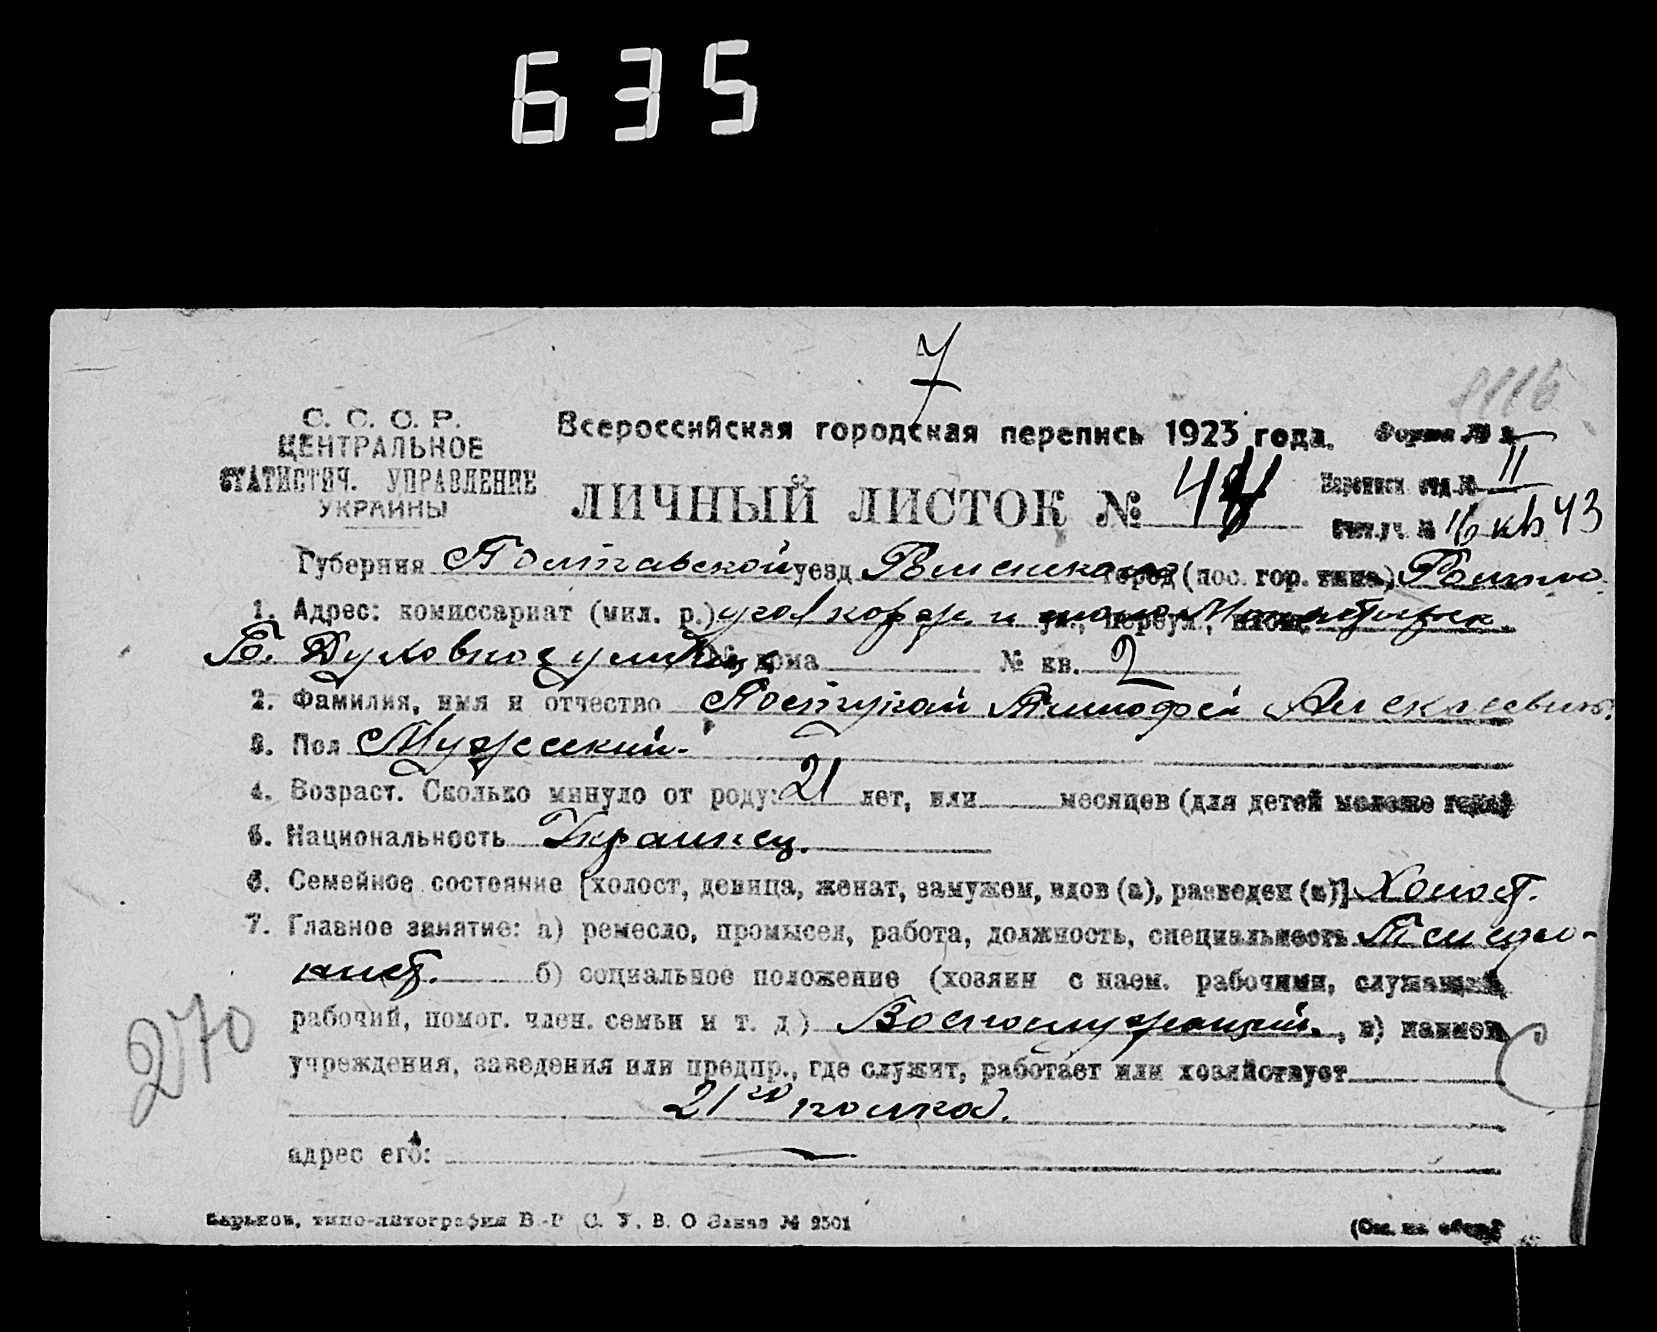 635
7
1116
С. С. С. Р.
ЦЕНТРАЛЬНОЕ
СТАТИСТИЧ. УПРАВЛЕНИЕ
УКРАИНЫ
Всероссийская городская перепись 1923 года.
Форма №
ЛИЧНЫЙ ЛИСТОК №
Переписн отд. № II
Счетн. уч. № 16 кв 43
Губерния Полтавской уезд город (пос. гор. типа)
1. Адрес: комиссариат (мил. р.) угол и ул., переул., площ.
Б. Духовной улиц № дома № кв. 2
2. Фамилия, имя и отчество Тимофей Алексеевич.
3. Пол Мужеский.
4. Возраст. Сколько минуло от роду: 21 лет, или месяцев (для детей моложе года)
5. Национальность Украинец.
6. Семейное состояние [холост, девица, женат, замужем, вдов (а), разведен (а)] Холост.
7. Главное занятие: а) ремесло, промысел, работа, должность, специальность Телефо-
нист. б) социальное положение (хозяин с наем. рабочими, служащий,
рабочий, помог. член. семьи и т. д.) Военнослужащий., в) наимен.
учреждения, заведения или предпр., где служит, работает или хозяйствует
21го полка.
адрес его:
270
Харьков, типо-литография В.-Р. С. У. В. О Заказ № 2501
(См. на обор.)